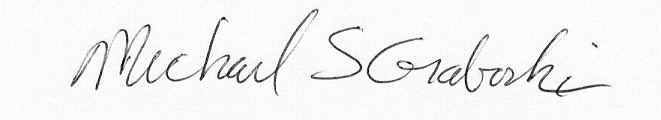 Michael S Graboski